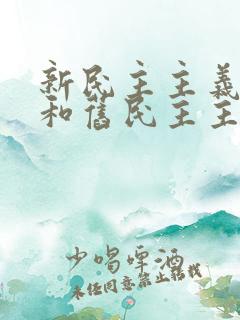 新民主主義
和舊民主主
少喝啤酒
未经同意禁止转载